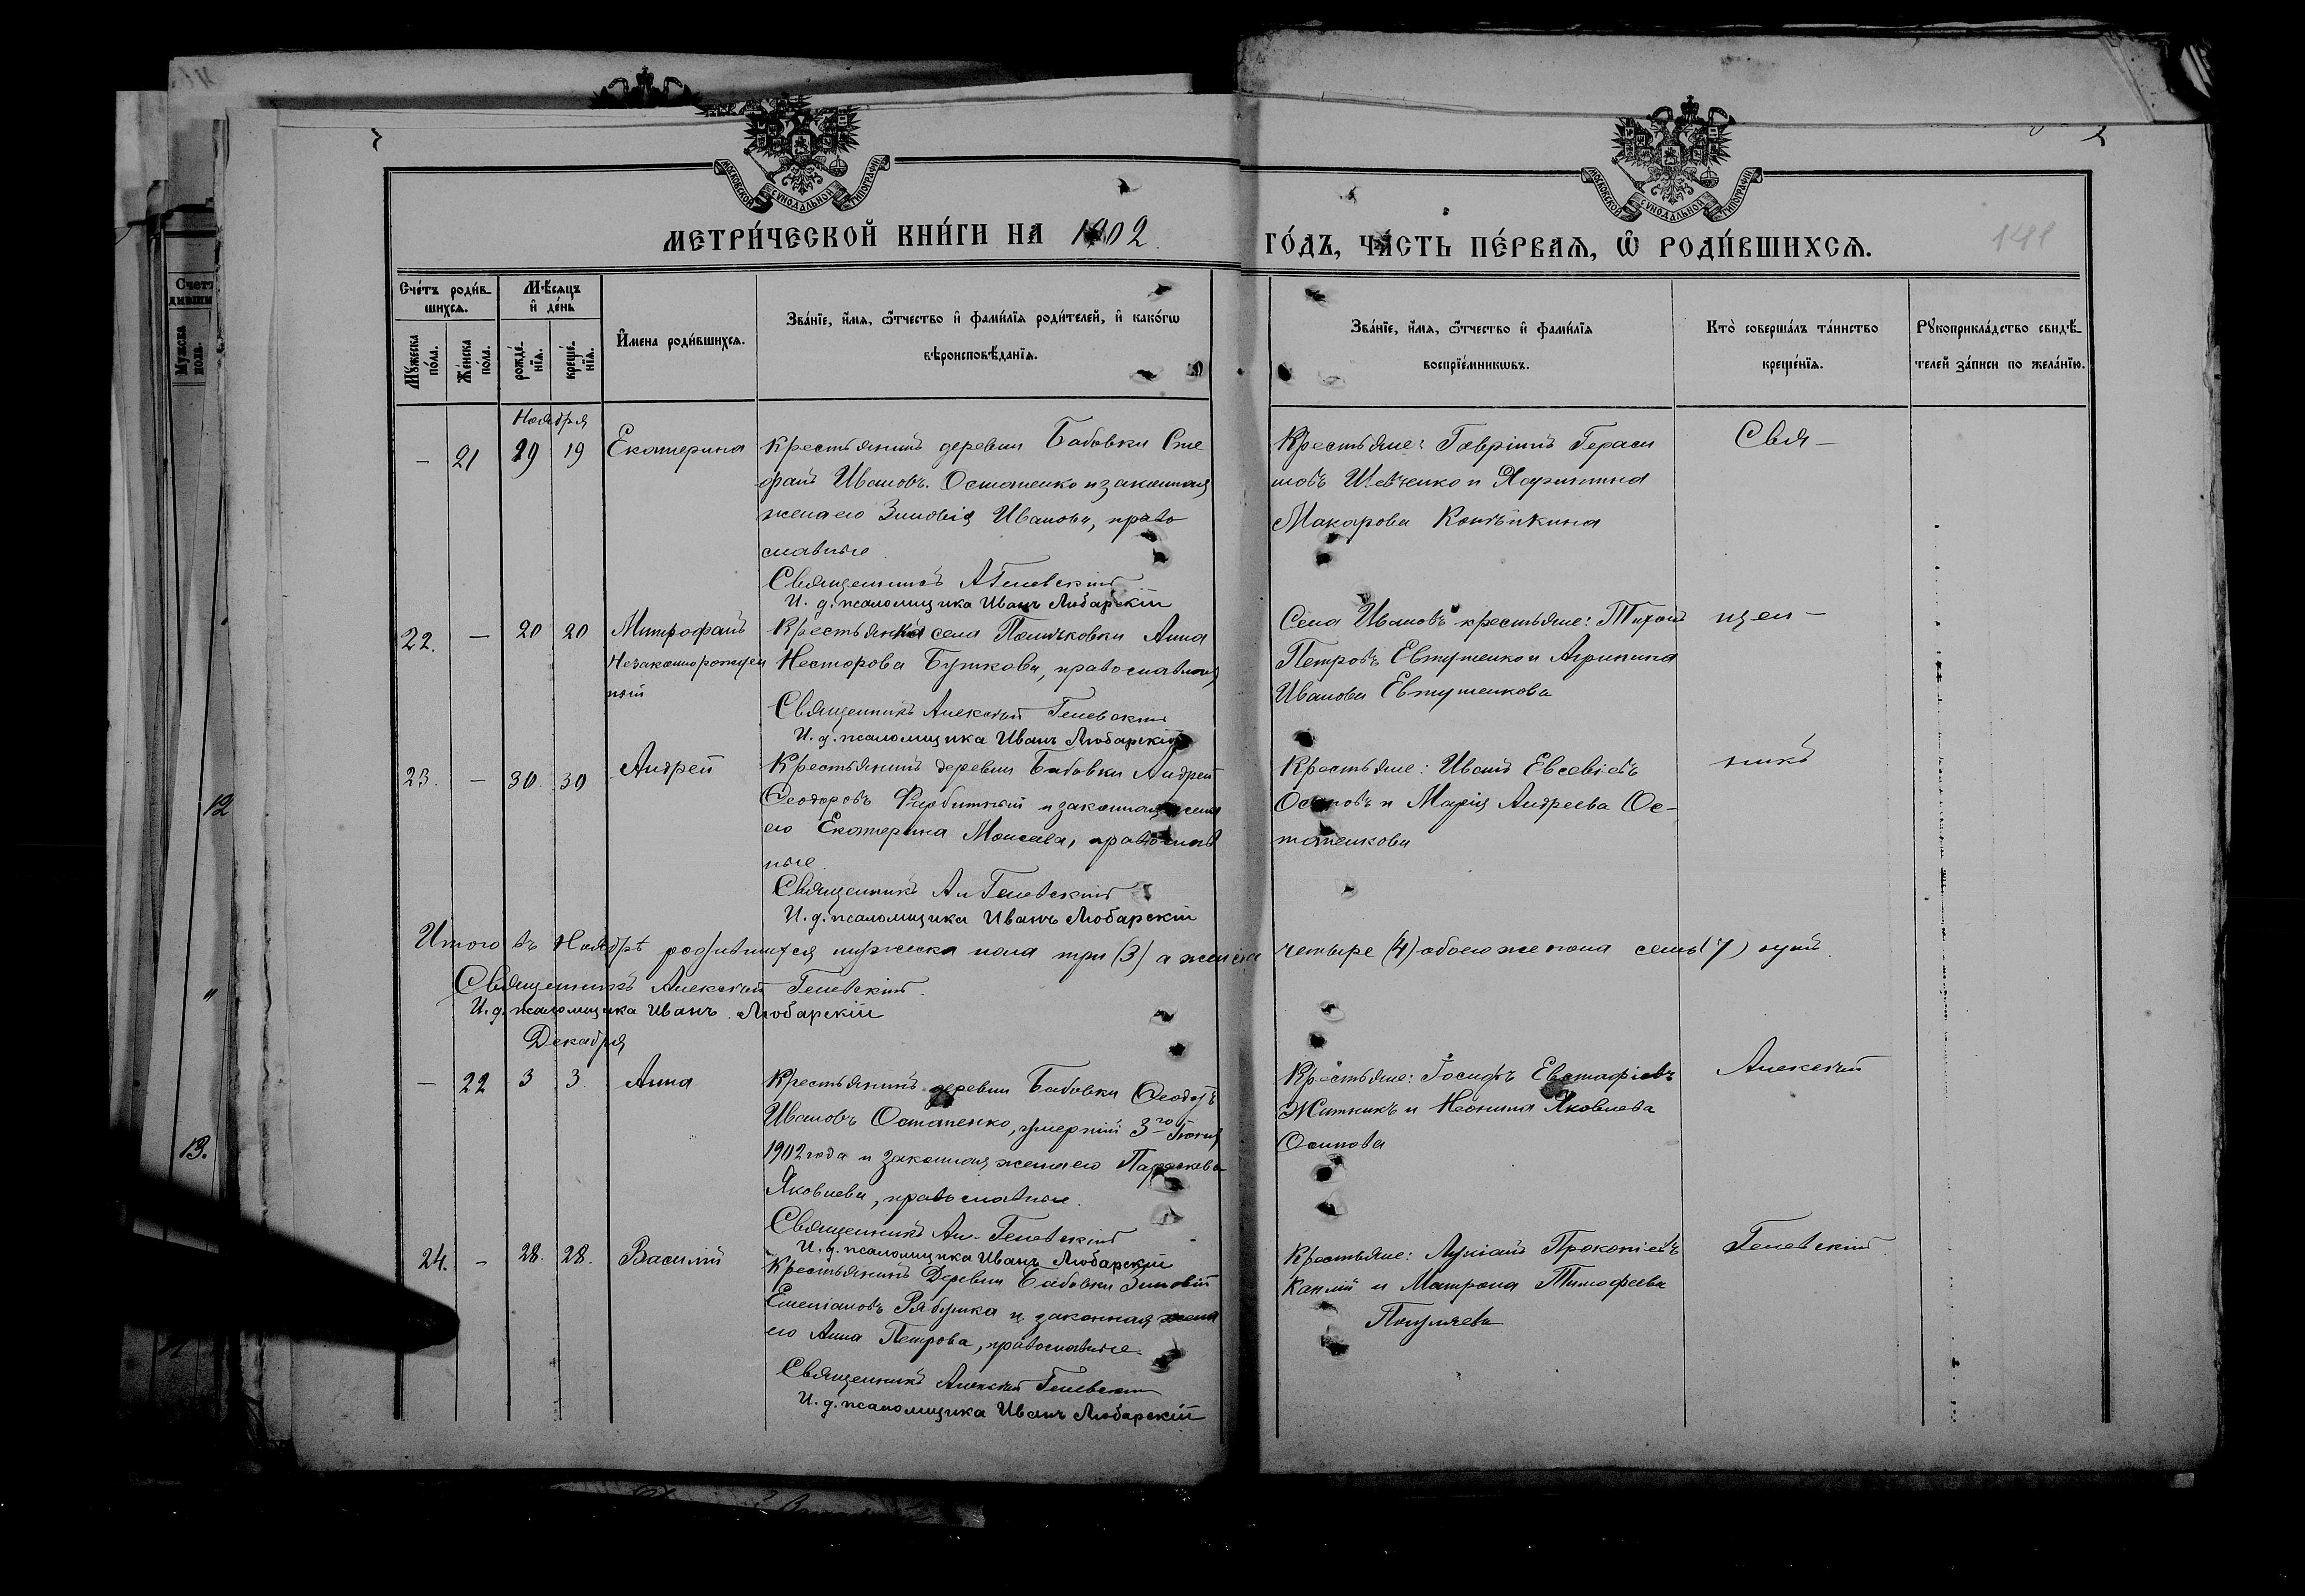 МОСКОВСКОЙ СѴНОДАЛЬНОЙ ТИПОГРАФІИ
МОСКОВСКОЙ СѴНОДАЛЬНОЙ ТИПОГРАФІИ
МЕТРИ́ЧЕСКОЙ КНИ́ГИ НА 1902
ГО́ДЪ, ЧА́СТЬ ПЕ́РВАЯ, Ѽ РОДИ́ВШИХСЯ.
141
Сче́тъ роди́в-
шихся.
Мѣ́сяцъ
и҆ де́нь
Мꙋ́жеска
по́ла.
Же́нска
по́ла.
рожде́-
нїя.
креще́-
нїя.
И҆́мена роди́вшихся.
Зва́нїе, и҆́мя, ѻ҆́тчество и҆ фами́лїя роди́телей, и҆ како́гѡ
вѣроисповѣ́данїя.
Зва́нїе, и҆́мя, ѻ҆́тчество и҆ фами́лїя
воспрїе́мникѡвъ.
Кто̀ соверша́лъ та́инство
креще́нїя.
Рꙋкоприкла́дство свидѣ́-
телей за́писи по жела́нїю.
Ноября
— 21 19 19 Екатерина
Крестьянинъ деревни Бабовки Сте
фанъ Ивановъ Остапенко и законная
жена его Зиновія Иванова, право
славные.
Священникъ А Геневскій
И. д. псаломщика Иванъ Любарскій
Крестьяне: Гавріилъ Гераси
мовъ Шевченко и
Макарова
Свя—
22. — 20 20 Митрофанъ
Незаконнорожден
ный
Крестьянка села Анна
Несторова Буткова, православная
Священникъ Алексѣй Геневскій
И. д. псаломщика Иванъ Любарскій
Села Ивановъ крестьяне: Тихонъ
Петровъ Евтушенко и Агрипина
Иванова Евтушенкова
щен—
23. — 30 30 Андрей
Крестьянинъ деревни Бабовки Андрей
Ѳеодоровъ и законная жена
его Екатерина Моисеева, православ
ные
Священникъ Ал Геневскій
И. д. псаломщика Иванъ Любарскій
Крестьяне: Иванъ Евсевіевъ
Осиповъ и Марія Андреева Ос-
тапенкова
никъ
Итого въ Ноябрѣ родившихся мужеска пола три (3) а женска четыре (4) обоего же пола семь (7) душъ.
Священникъ Алексѣй Геневскій.
И. д. псаломщика Иванъ Любарскій
Декабря
— 22 3 3. Анна
Крестьянинъ деревни Бабовки Ѳеодоръ
Ивановъ Остапенко, умершій 3го Іюня
1902 года и законная жена его Параскева
Яковлева, православные.
Священникъ Ал. Геневскій
И. д. псаломщика Иванъ Любарскій
Крестьяне: Іосифъ Евстафіевъ
Житникъ и Неонила Яковлева
Осипова
Алексѣй
24. — 28. 28. Василій
Крестьянинъ Деревни Бабовки Зиновій
Емеліановъ Рябушка и законная жена
его Анна Петрова, православные.
Священникъ Алексѣй Геневскій
И. д. псаломщика Иванъ Любарскій
Крестьяне: Лукіанъ Прокопіевъ
и Матрона Тимофеева
Геневскій
12
"
13.